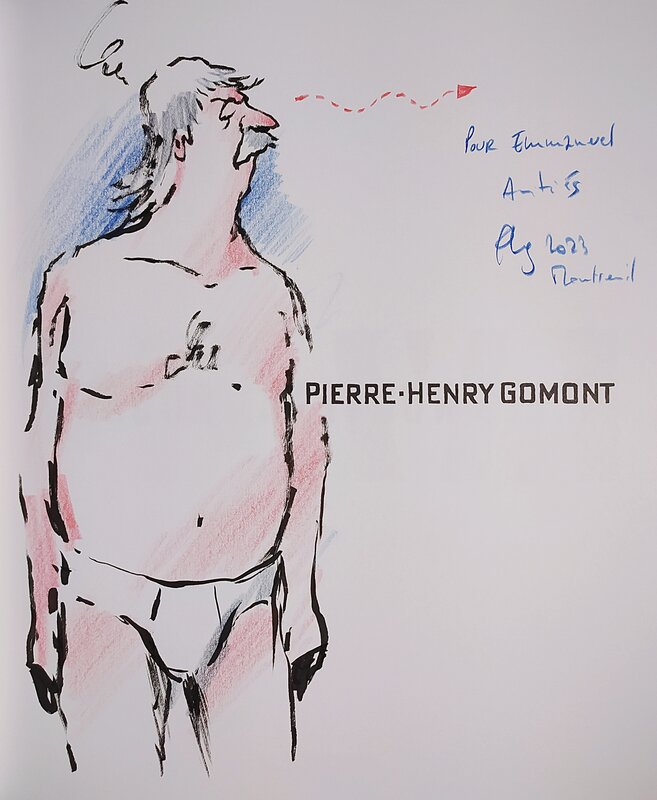 Pour Emmanuel
Amitiés
2023
Montreuil
PIERRE-HENRY GOMONT